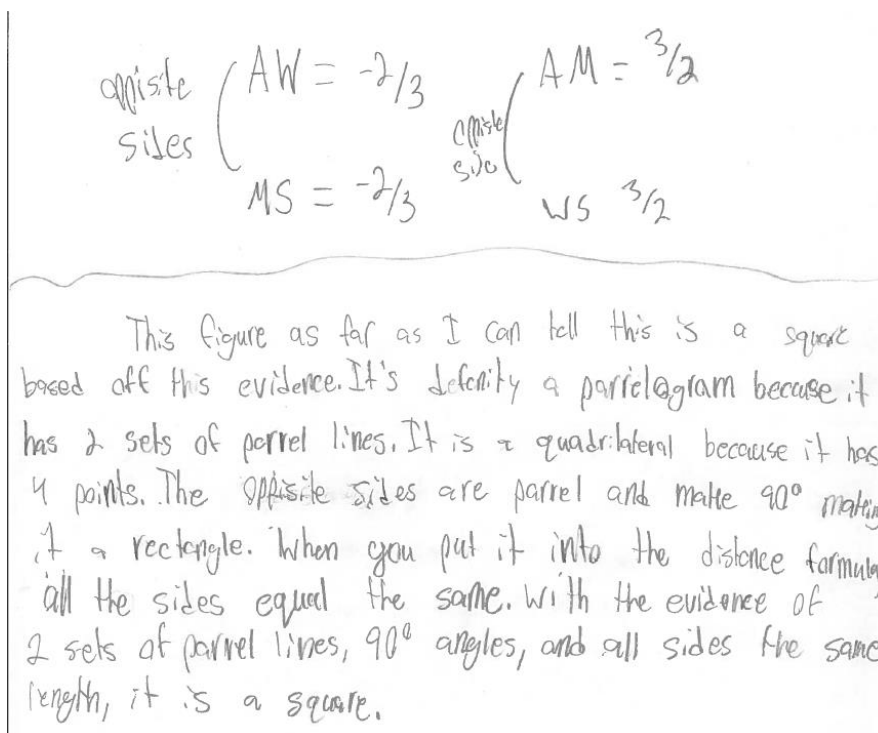 oppisite sides AW = -2/3
MS = -2/3
oppisite side AM = 3/2
WS 3/2
This figure as far as I can tell this is a square
based off this evidence. It's defenity a parrelogram because it
has 2 sets of parrel lines. It is a quadrilateral because it has
4 points. The oppisite sides are parrel and make 90° making
it a rectangle. When you put it into the distance formula
all the sides equal the same. With the evidence of
2 sets of parrel lines, 90° angles, and all sides the same
length, it is a square.